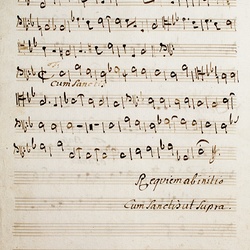 Cum Sanct
Requiem ab initio
Cum Sanctis ut Supra.